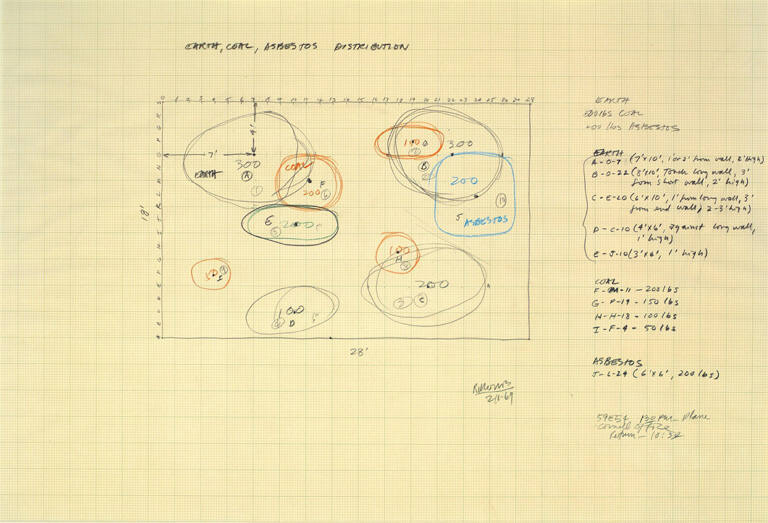 EARTH, COAL, ASBESTOS DISTRIBUTION
0 1 2 3 4 5 6 7 8
18 19 20 21 22 23 24 25 26 27 28
4'
7'
300
EARTH
A
1
COAL
200
F
6
E
5
100
300
B
2
200
ASBESTOS
5
10
18'
50
I
100
H
200
3
C
100
D
28'
RMorris
2/1-69
EARTH
COAL
ASBESTOS
EARTH
A-O-7 (7'x10', 1' or 2' from wall, 2' high)
B-O-22 (8'x10', Touch long wall, 3'
from short wall, 2' high)
C-E-20 (6'x10', 1' from long wall, 3'
from end wall, 2-3' high)
D-C-10 (4'x6', against long wall,
1' high)
E-J-10 (3'x6', 1' high)
COAL
F-M-11 - 200 lbs
G-P-19 - 150 lbs
H-H-18 - 100 lbs
I-F-4 - 50 lbs
ASBESTOS
J-L-24 (6'x6', 200 lbs)
Plane
Return - 10:30